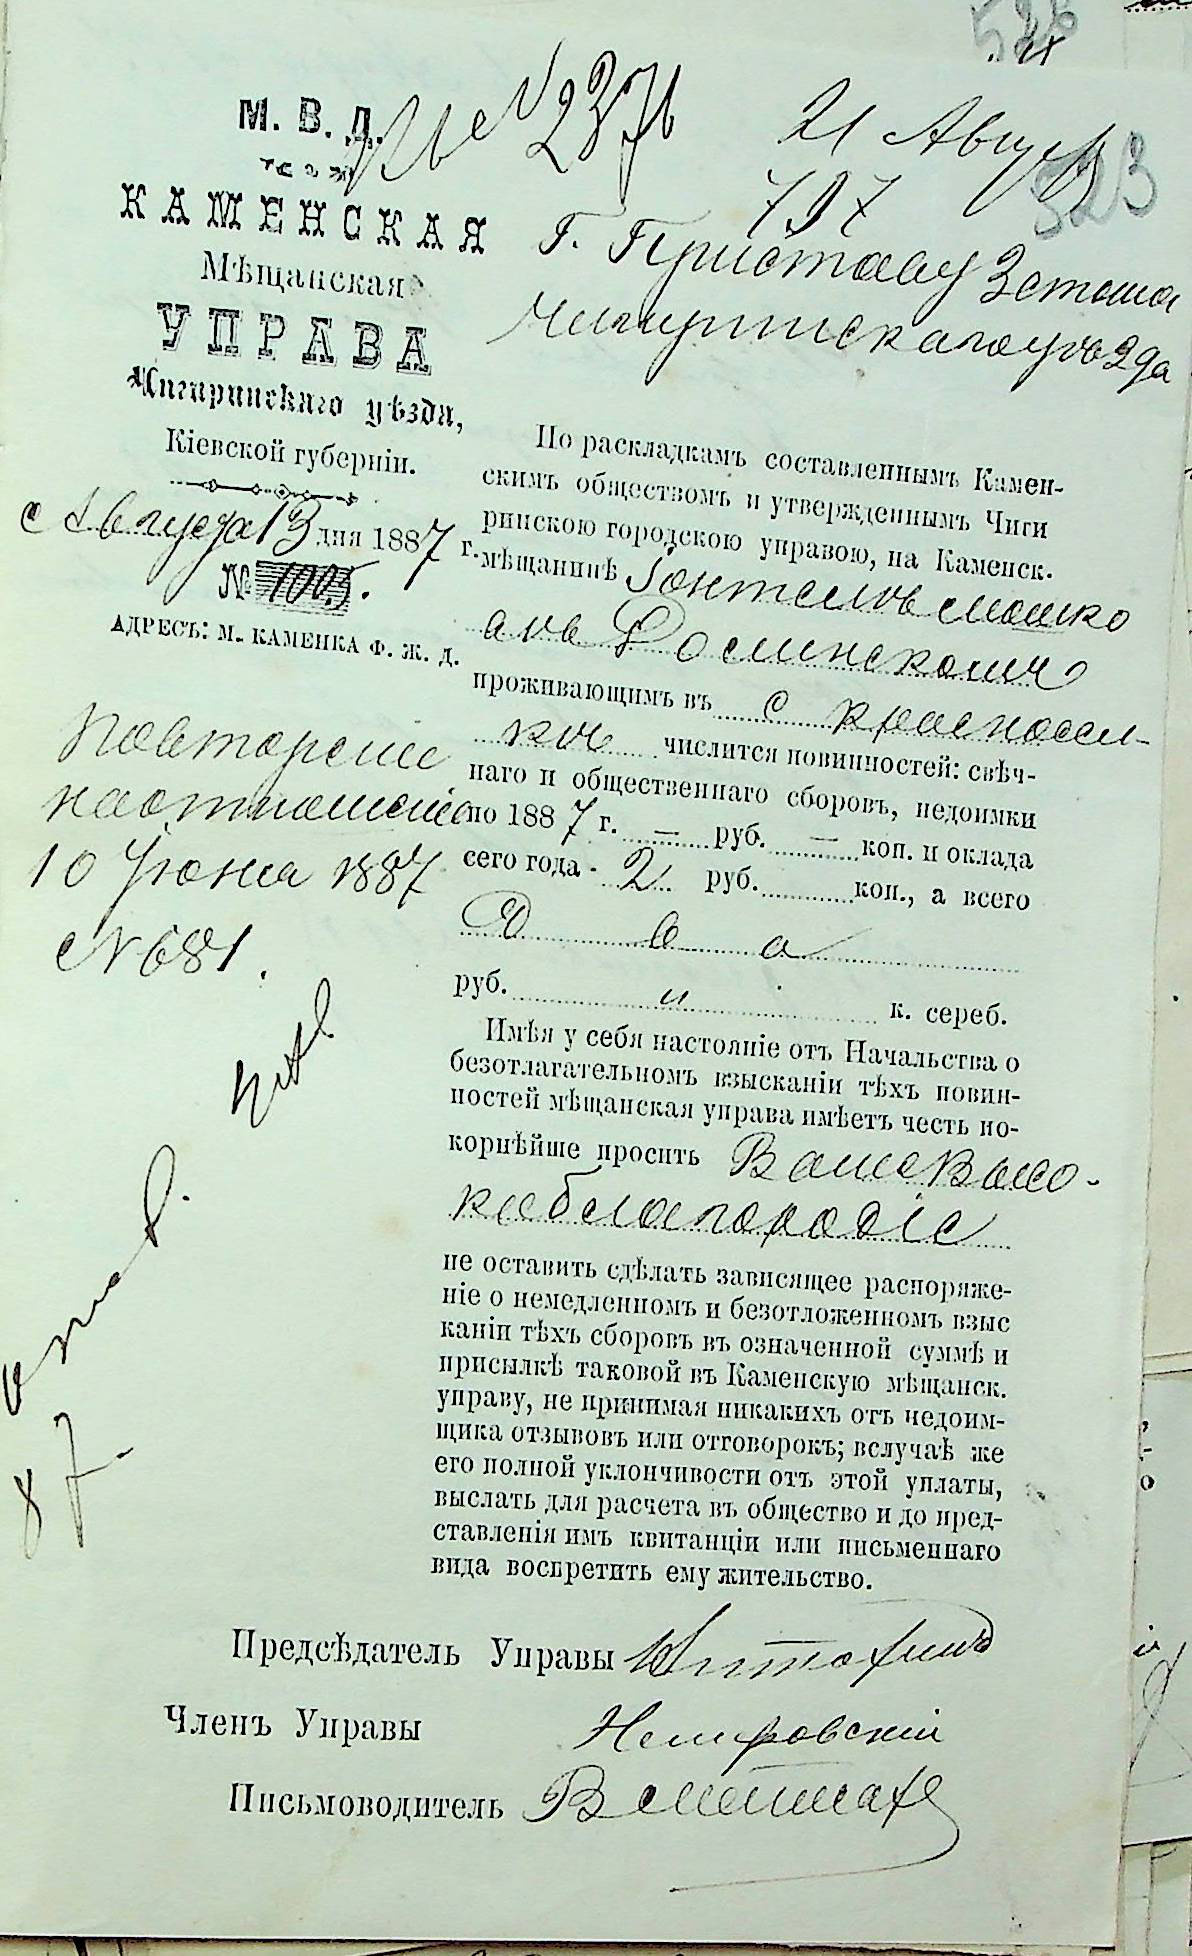 526
523
№ 2376
21 Август
М. В. Д.
КАМЕНСКАЯ
Мѣщанская
УПРАВА
Чигиринскаго уѣзда,
Кіевской губерніи.
Августа 13 дня 1887 г.
№ 1005.
АДРЕСЪ: М. КАМЕНКА Ф. Ж. Д.
Повтореніе
на отношеніе
10 Іюня 1887
№ 681.
Г. Приставу 3 стана
Чигиринскаго уѣзда
По раскладкамъ составленнымъ Камен-
скимъ обществомъ и утвержденнымъ Чиги
ринскою городскою управою, на Каменск.
мѣщанинѣ
проживающимъ въ с Красносел-
кѣ числится повинностей: свѣч-
наго и общественнаго сборовъ, недоимки
по 1887 г. — руб. — коп. и оклада
сего года 2 руб. коп., а всего
Два
руб. и к. сереб.
Имѣя у себя настояніе отъ Начальства о
безотлагательномъ взысканіи тѣхъ повин-
ностей мѣщанская управа имѣетъ честь по-
корнѣйше просить Ваше Высо-
коблагородіе
не оставить сдѣлать зависящее распоряже-
ніе о немедленномъ и безотложенномъ взыс
каніи тѣхъ сборовъ въ означенной суммѣ и
присылкѣ таковой въ Каменскую мѣщанск.
управу, не принимая никакихъ отъ недоим-
щика отзывовъ или отговорокъ; вслучаѣ же
его полной уклончивости отъ этой уплаты,
выслать для расчета въ общество и до пред-
ставленія имъ квитанціи или письменнаго
вида воспретить ему жительство.
Предсѣдатель Управы
Членъ Управы Немировскій
Письмоводитель